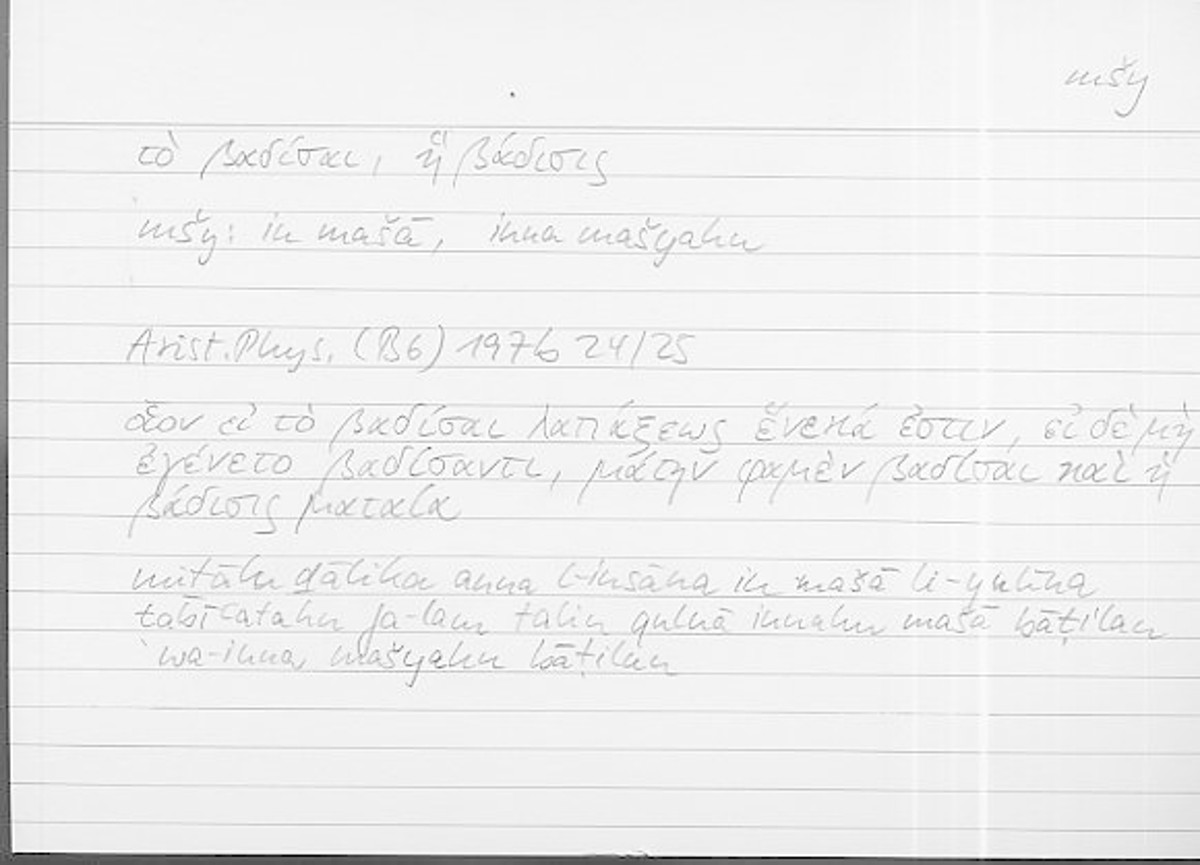 mšy
τὸ βαδίσαι, ἡ βάδισις
mšy: in mašā, inna mašyahu
Arist. Phys. (B6) 197b 24/25
οἷον εἰ τὸ βαδίσαι λαπάξεως ἕνεκά ἐστιν, εἰ δὲ μὴ
ἐγένετο βαδίσαντι, μάτην φαμὲν βαδίσαι καὶ ἡ
βάδισις ματαία
miṯālu ḏālika anna l-insāna in mašā li-yulīna
ṭabīʿatahu fa-lam talin qulnā innahu mašā bāṭilan
wa-inna mašyahu bāṭilun